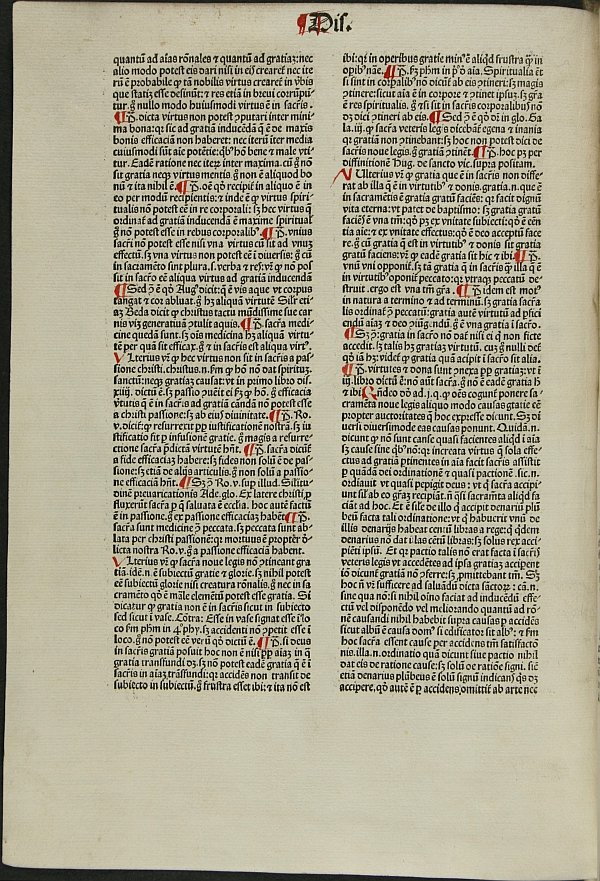 ¶ Dis.
quantū ad aīas rōnales ⁊ quantū ad gratiaȝ: nec
alio modo potest eis dari nisi in eis crearet̄ nec ite
rū ē probabile ꝙ tā nobilis virtus crearet̄ in ꝟbis
que statiȝ esse desinūt: ⁊ res etiā in breui corrūpū
tur. ḡ nullo modo huiusmodi virtus ē in sacrīs.
¶ P. dicta virtus non potest ꝯputari inter mini
ma bona: qꝛ sic ad gratiā inducēdā q̄ ē de maxis
bonis efficaciā non haberet: nec iterū iter media
cuiusmodi sūt aīe potētie: qbꝰ hō bene ⁊ male vti
tur. Eadē ratione nec iteꝝ inter maxima. cū ḡ nō
sit gratia neqꝫ virtus mentis ḡ non ē aliquod bo
nū ⁊ ita nihil ē. ¶ P. oē qō recipit̄ in aliquo ē in
eo per modū recipientis: ⁊ inde ē ꝙ virtus spiri
tualis nō potest eē in re corporali: sȝ hec virtus q̄
ordinat̄ ad gratiā inducendā ē maxime spiritual̄
ḡ nō potest esse in rebus corporalibꝰ. ¶ P. vnius
sacrī nō potest esse nisi vna virtus cū sit ad vnuȝ
effectū. sȝ vna virtus non potest eē ī diuersis: ḡ cū
in sacramēto sint plura. s. verba ⁊ res: vr̄ ꝙ nō pos
sit in sacrō eē aliqua virtus ad gratiā inducendā
¶ Sed ꝯ ē qō Aug. dicit: q̄ ē vis aque vt corpus
tangat ⁊ cor abluat. ḡ hȝ aliquā virtutē Silr̄ eti
aȝ Beda dicit ꝙ christus tactu mūdissime sue car
nis viȝ generatiuā ꝯtulit aquis. ¶ P. sacrā medi
cine quedā sunt. sȝ oīs medicina hȝ aliquā virtu
tē per quā sit efficax. ḡ ⁊ in sacrīs est aliqua virtꝰ.
Vlterius vr̄ ꝙ hec virtus non sit in sacrīs a pas
sione christi. christus. n. fm ꝙ hō nō dat spiritū
sanctū: neqꝫ gratiaȝ causat: vt in primo libro dis.
xiiij. dictū ē. sȝ passio ꝯuēit ei fȝ ꝙ hō. ḡ efficacia
virtutis q̄ ē in sacrīs ad gratiā causādā nō potest esse
a christi passione: sȝ ab eiꝰ diuinitate. ¶ P. Ro.
v. dicit̄: ꝙ resurrexit ꝓpter iustificationē nostrā. sȝ iu
stificatio fit ꝑ infusionē gratie. ḡ magis a resurre
ctione sacrā p̄dictā virtutē hn̄t. ¶ P. sacrā dicūt̄
a fide efficaciaȝ habere: sȝ fides non solū ē de pas
sione: sȝ etiā de alijs articulis. ḡ non solū a passio
ne efficaciā hn̄t. ¶ Sȝ ꝯ Ro. v. sup illud. Silitu
dinē preuaricationis Ade. glo. Ex latere christi ꝓ
fluxerūt sacrā ꝑ q̄ saluata ē ecclīa. hoc autē factū
ē in passione. ḡ ex passione efficaciaȝ habēt. ¶ P.
sacrā sunt medicine ꝯ peccata. sȝ peccata sunt ab
lata per christi passionē: qꝛ mortuus ē propter de
licta nostra Ro. v. ḡ a passione efficaciā habent.
Vlterius vr̄ ꝙ sacrā noue legis nō ꝯtineant gra
tiā. idē. n. ē subiectū gratie ⁊ glorie. sȝ nihil potest
eē subiectū glorie nisi creatura rōnalis. ḡ nec in sa
cramēto qō ē māle elemētū potest esse gratia. Si
dicatur ꝙ gratia non ē in sacrīs sicut in subiecto
sed sicut ī vase. Cōtra: Esse in vase signat esse ī lo
co fm phm in .4. phy. sȝ accidenti nō ꝯpetit esse ī
loco. ḡ nō potest eē verū qō dictū ē. ¶ P. si deus
in sacrīs gratiā posuit hoc non ē nisi ꝓpter aīaȝ in q̄
gratia transfundi dȝ. sȝ nō potest eadē gratia q̄ ē ī
sacrīs in aīaȝ trāsfundi: qꝛ accidēs non transit de
subiecto in subiectū. ḡ frustra esset ibi: ⁊ ita nō est
ibi: qꝛ in operibus gratie minꝰ ē aliqd frustra q̄ in
oꝑibꝰ nāe. ¶ P. fȝ phm in pº. d̄ aīa. Spiritualia et̄
si sint in corꝑalibꝰ nō dicūt̄ ab eis ꝯtineri: sȝ magis
ꝯtinere: sicut aīa ē in corpore ⁊ ꝯtinet ipsuȝ. sȝ gr̄a
ē res spiritualis. ḡ ⁊si sit in sacrīs corporalibus nō
dȝ dici ꝯtineri ab eis. ¶ Sed ꝯ ē qō dr̄ in glo. Ga
la. iij. ꝙ sacrā veteris legis dicebāt̄ egena ⁊ inania
qꝛ gratiā non ꝯtinebant: sȝ hoc non potest dici de
sacrīs noue legis. ḡ gratiā ꝯtinēt. ¶ P. hoc pȝ per
diffinitionē Hug. de sancto vic. supra positam.
Vlterius vr̄ ꝙ gratia que ē in sacrīs non diffe
rat ab illa q̄ ē in virtutibꝰ ⁊ donis. gratia. n. que ē
in sacramētis ē gratia gratū faciēs: qꝛ facit dignū
vita eterna: vt patet de baptismo: sȝ gratia gratū
faciēs ē vna tm̄: qō pȝ ex vnitate subiecti: qō ē eēn
tia aīe: ⁊ ex vnitate effectus: qō ē deo acceptū face
re. ḡ cū gratia q̄ est in virtutibꝰ ⁊ donis sit gratia
gratū faciens: vr̄ ꝙ eadē gratia sit hic ⁊ ibi. ¶ P.
vnū vni opponit̄. sȝ tā gratia q̄ in sacrīs qꝫ illa q̄ ē
in virtutibꝰ opponit̄ peccato: qꝛ vtraqꝫ peccatū de
struit. ergo est vna tm̄ gr̄a. ¶ P. idem est motꝰ
in natura a termino ⁊ ad terminū. sȝ gratia sacra
lis ordinat̄ ꝯ peccatū: gratia autē virtutū ad ꝑfici
endū aīaȝ ⁊ deo ꝯiūg. ndū. ḡ ē vna gratia ī sacrō.
¶ Sȝ ꝯ: gratia in sacrō nō dat̄ nisi ei q̄ non ficte
accedit. sȝ talis hȝ gratiaȝ virtutū. cuȝ ḡ nulli det̄
qō iā hȝ: videt̄ ꝙ gratia quā acipit ī sacrō sit alia.
¶ P. virtutes ⁊ dona sunt ꝯnexa ꝓpter gratiaȝ: vt ī
iij. libro dictū ē: nō aūt sacrā. ḡ nō ē eadē gratia h̄
⁊ ibi Rn̄deo dō ad. j. q. ꝙ oēs cogunt̄ ponere sa
cramēta noue legis aliquo modo causas gratie eē
propter auctoritates q̄ hoc expresse dicunt. Sȝ di
uersi diuersimode eas causas ponunt. Quidā. n.
dicunt ꝙ nō sunt cause quasi facientes aliqd ī aīa
sȝ cause sine qbꝰ nō: qꝛ increata virtus q̄ sola effe
ctus ad gratiā ꝑtinentes in aīa facit sacrīs assistit
ꝑ quādā dei ordinationē ⁊ quasi pactionē. sic. n.
ordiauit vt quasi pepigit deus: vt q̄ sacrā accipi
unt sil̄ ab eo gr̄aȝ recipiāt. nō qsi sacrāmta aliqd fa
ciāt ad hoc. Et ē sile de illo q̄ accipit denariū plū
beū facta tali ordinatione: vt q̄ habuerit vnū de
illis denarijs habeat centū libras a rege: q̄ qdem
denarius nō dat illas cētū libras: sȝ solus rex acci
piēti ipsū. Et qꝛ pactio talis nō erat facta ī sacrīs
veteris legis vt accedētes ad ipsa gratiaȝ acciperent
iō dicunt̄ gratiā nō ꝯferre: sȝ ꝓmittebant tm̄. Sȝ
hoc nō vr̄ sufficere ad saluādū dicta sāctorꝝ: cā. n.
sine qua nō: si nihil oīno faciat ad inducēdū effe
ctū vel disponēdo vel meliorando quantū ad rō
nē causandi nihil habebit supra causas ꝑ accidēs
sicut albū ē causa domꝰ si edificator sit albꝰ: ⁊ fm
hoc sacrā essent cause per accidens tm̄ satisfactō
nis. illa. n. ordinatio quā dicunt siue pactio nihil
dat eis de ratione cause: sȝ solū de ratiōe signi. sic̄
etiā denarius plūbeus ē solū signū indicans qs dȝ
accipere. qō autē ē ꝑ accidens, omittit̄ ab arte nec